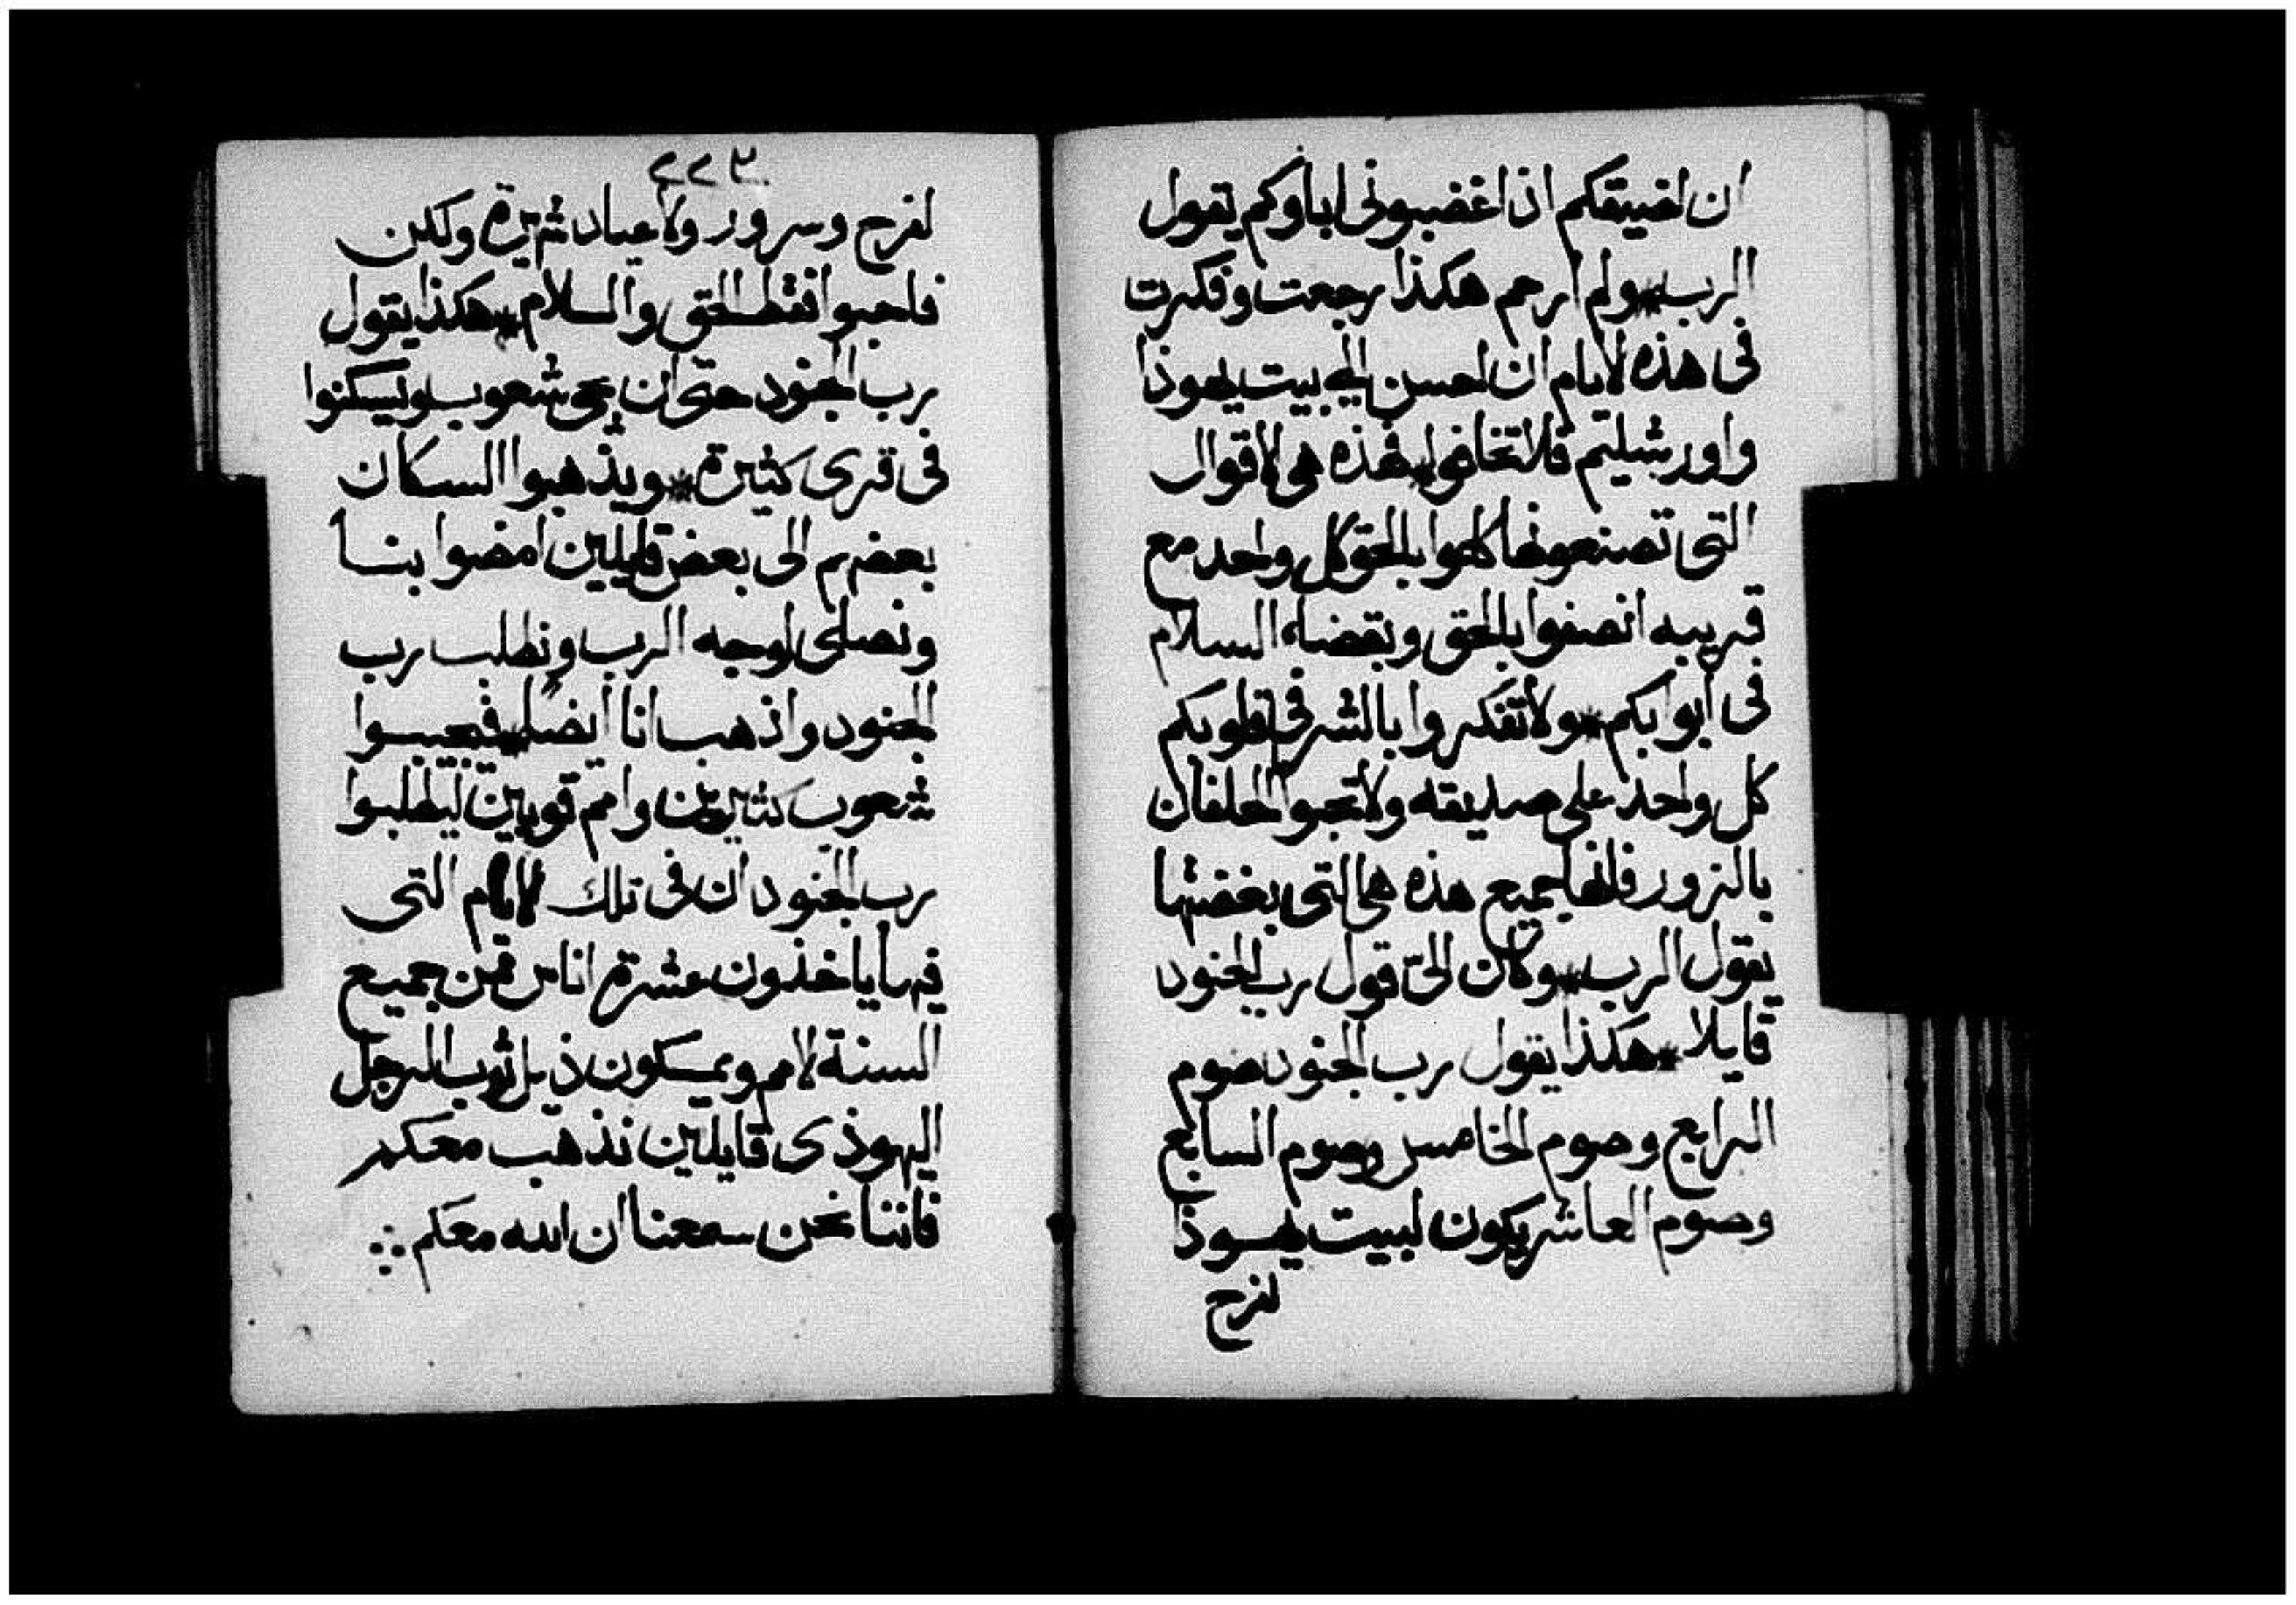 ان اضيقكم اذ اغضبونى اباوكم يقول
الرب * ولم ارحم هكذا رجعت وفكرت
فى هذه الايام ان احسن الي بيت يهوذا
واورشليم فلا تخافوا * فهذه هى الاقوال
التى تصنعونها كلموا بالحق كل واحد مع
قريبه انصفوا بالحق وبقضاء السلام
فى ابوابكم * ولا تفكروا بالشر فى قلوبكم
كل واحد على صديقه ولا تحبوا الحلفان
بالزور فانها جميع هذه هى التى بغضتها
يقول الرب * وكان الىّ قول رب الجنود
قايلا * هكذا يقول رب الجنود صوم
الرابع وصوم الخامس وصوم السابع
وصوم العاشر يكون لبيت يهوذا
لفرح
٢٢٣
لفرح وسرور ولاعياد ثميزة ولكن
فاحبوا فقط الحق والسلام * هكذا يقول
رب الجنود حتى ان يجى شعوب ويسكنوا
فى قرى كثيرة * ويذهبوا السكان
بعضهم الى بعض قايلين امضوا بنا
ونصلى لوجه الرب ونطلب رب
الجنود واذهب انا ايضا * فيجيبوا
شعوب كثيرين وامم قويين ليطلبوا
رب الجنود ان فى تلك الايام التى
فيها ياخذون عشرة اناس من جميع
السنة الامم ويمسكون ذيل ثوب الرجل
اليهوذى قايلين نذهب معكم
فاننا نحن سمعنا ان الله معكم